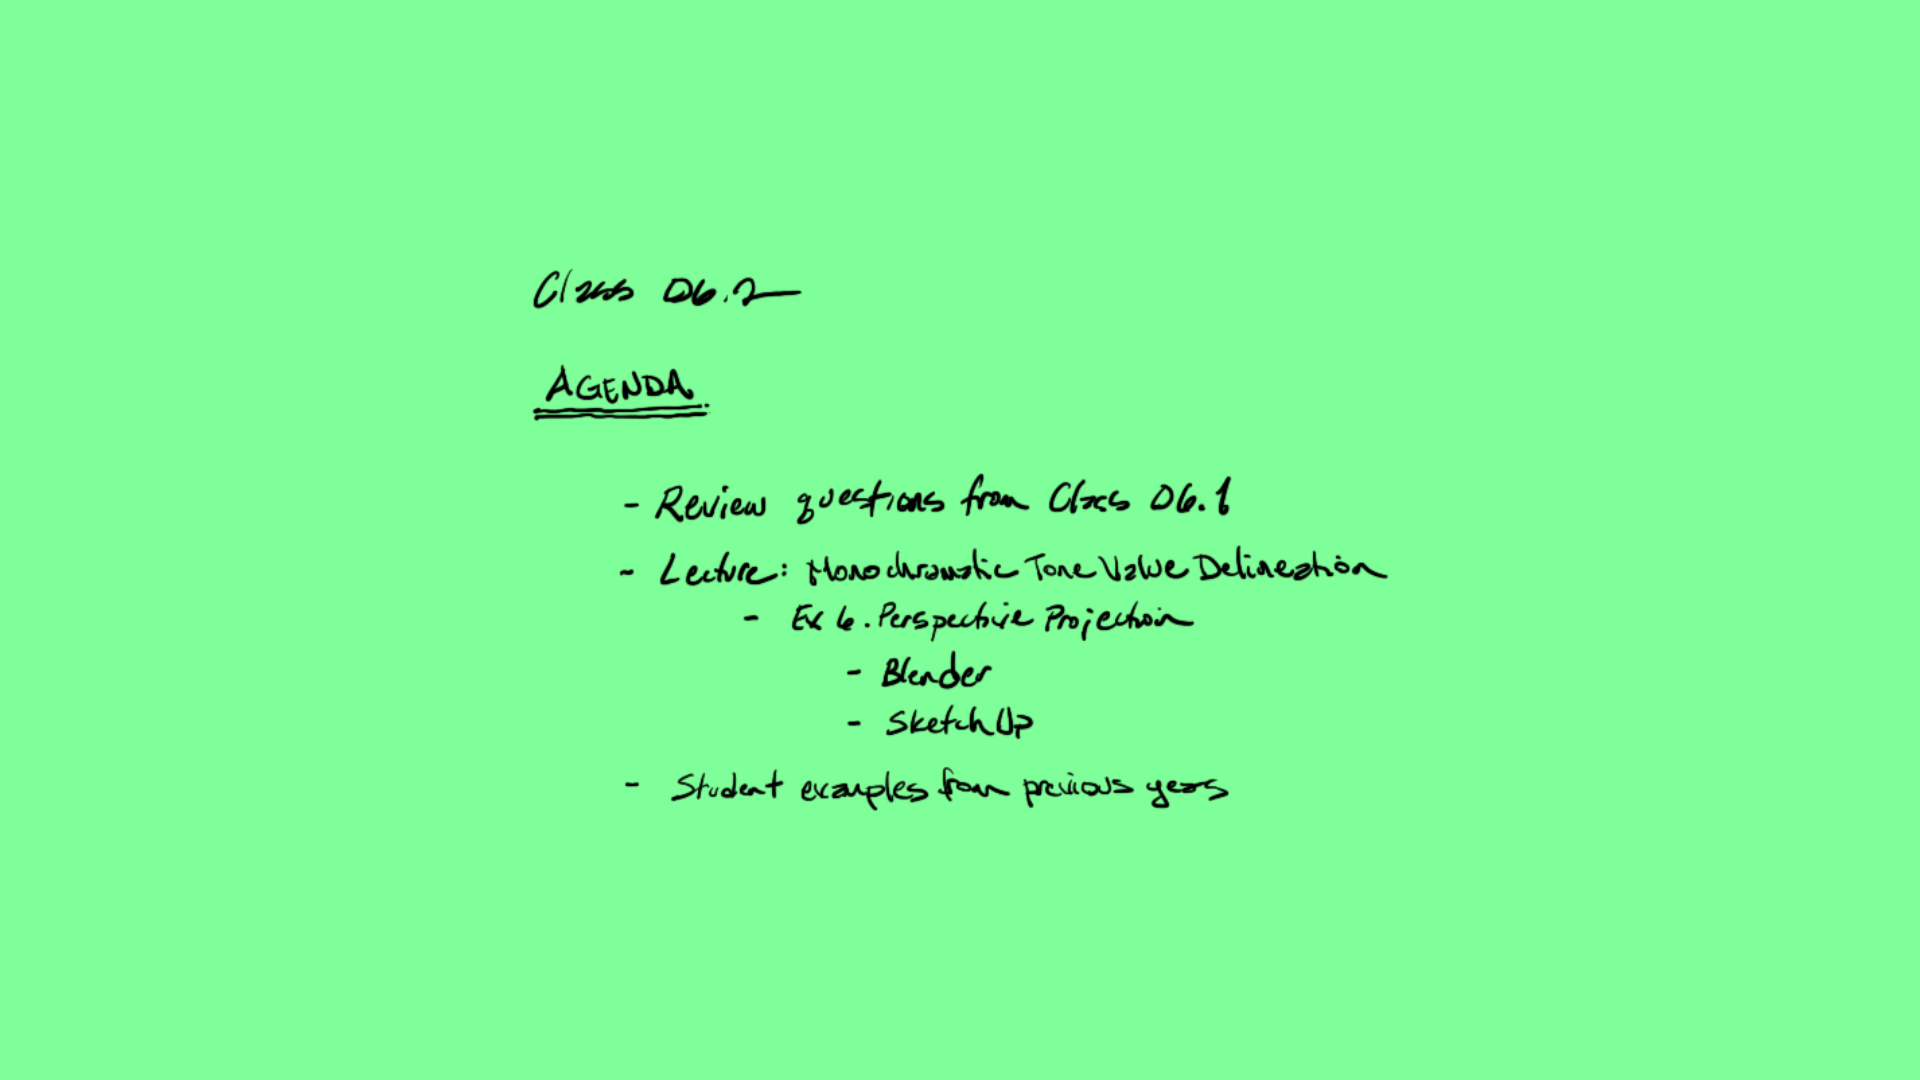 Class 06.2
AGENDA
- Review questions from Class 06.1
- Lecture: Monochromatic Tone Value Delineation
- Ex 6. Perspective Projection
- Blender
- SketchUp
- Student examples from previous years